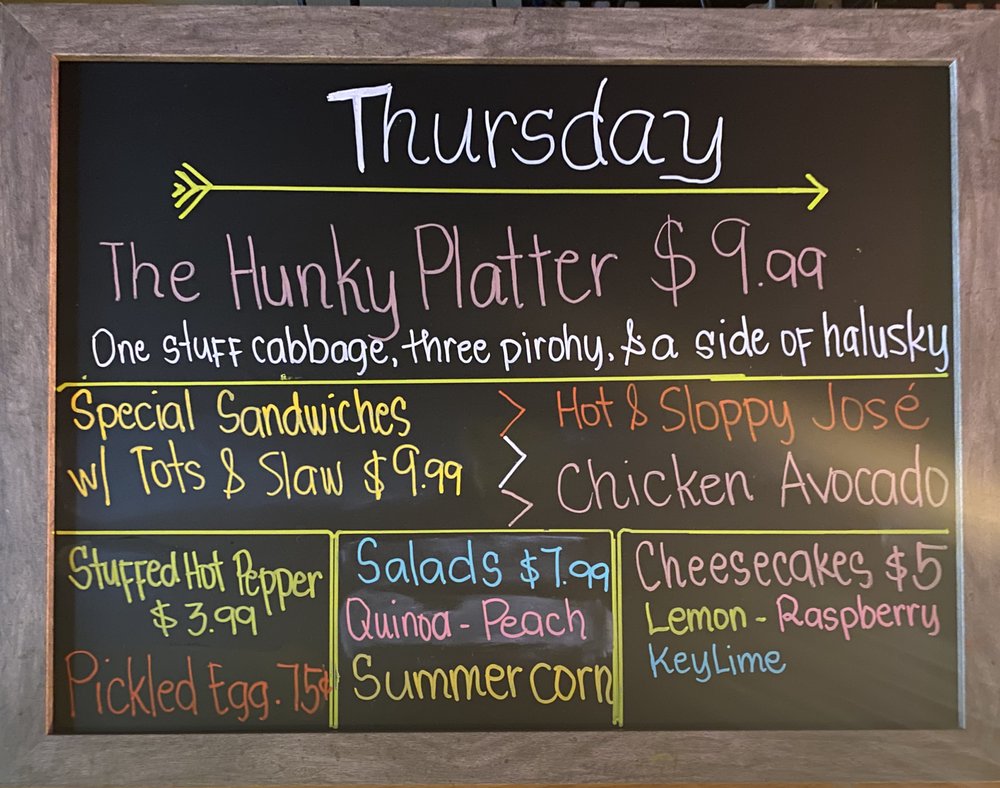 Thursday
The Hunky Platter $9.99
One stuff cabbage, three pirohy, & a side of halusky
Special Sandwiches
w/ Tots & Slaw $9.99
Hot & Sloppy José
Chicken Avocado
Stuffed Hot Pepper
$3.99
Pickled Egg. 75¢
Salads $7.99
Quinoa - Peach
Summer corn
Cheesecakes $5
Lemon - Raspberry
Key Lime